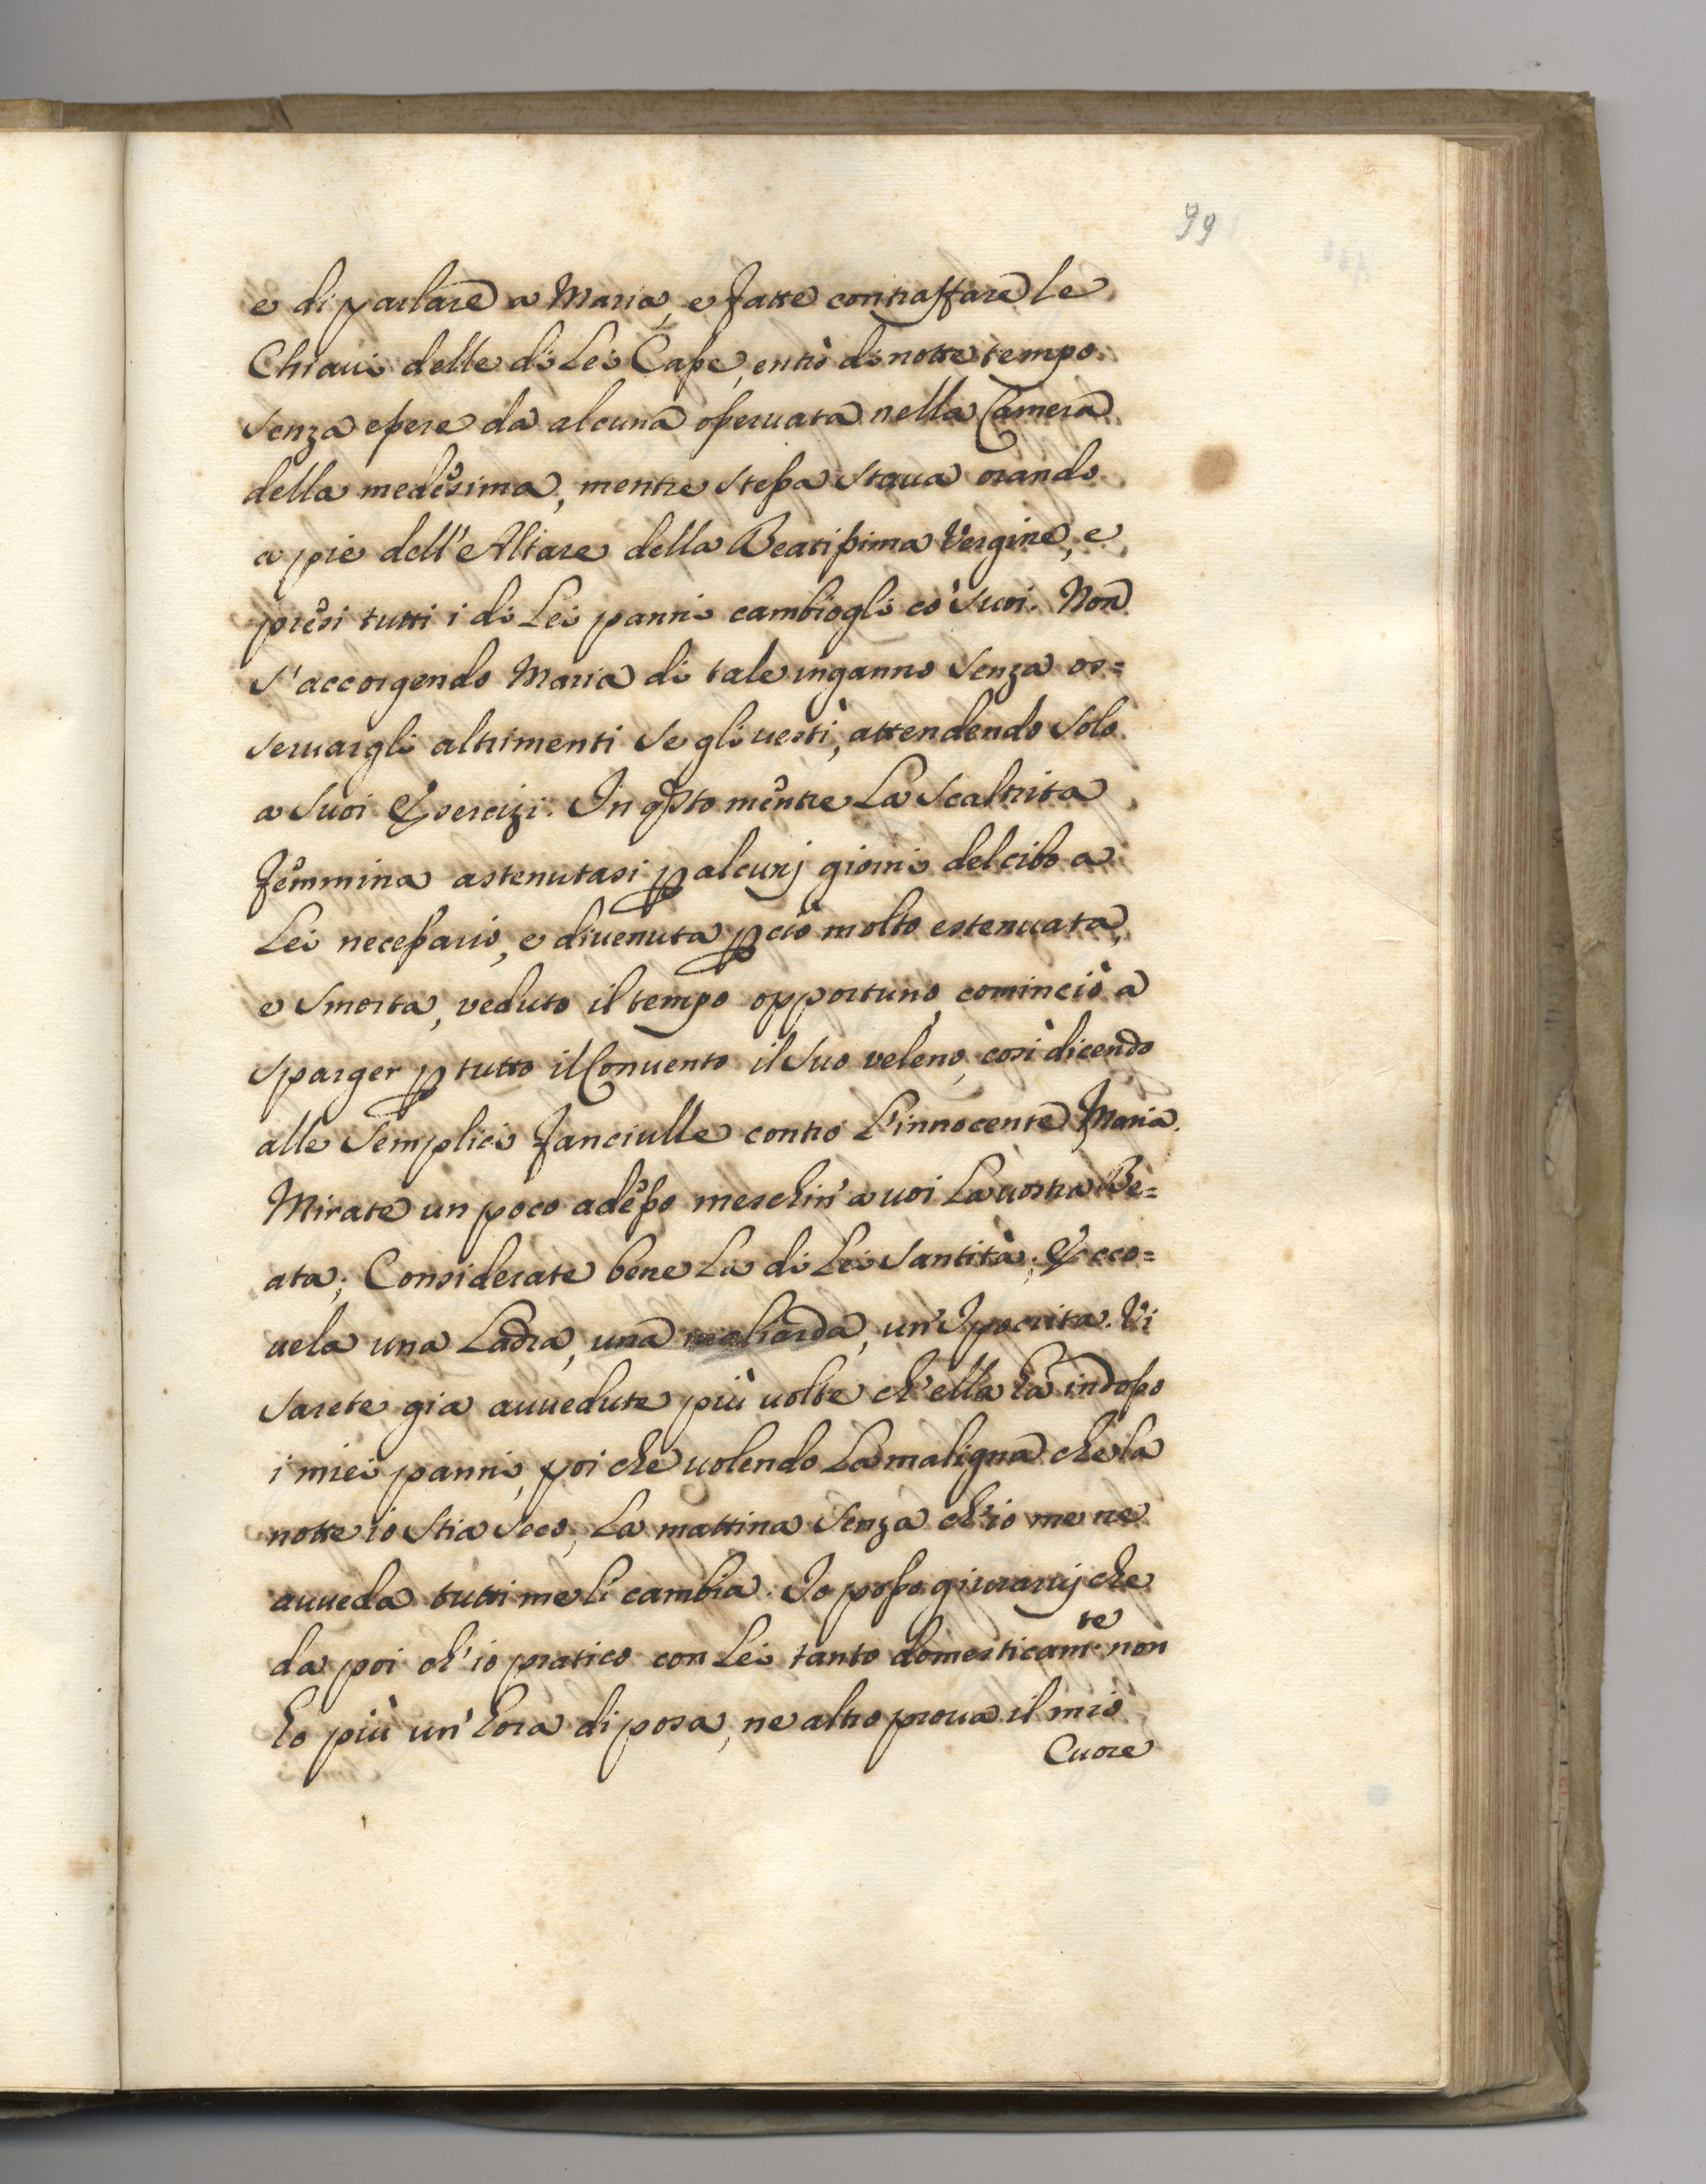 99
e di parlare a Maria, e fatte contraffare le
Chiaui delle di Lei Casse, entrò di notte tempo
senza essere da alcuna osseruata nella Camera
della medesima, mentre stessa staua orando
a piè dell'Altare della Beatissima Vergine, e
presi tutti i di Lei panni cambiogli co' suoi. Non
s'accorgendo Maria di tale inganno senza os=
seruargli altrimenti se gli uestì, attendendo solo
a suoi Esercizi. In qsto mentre La scaltrita
femmina astenutasi p alcunj giorni del cibo a
Lei necessario, e diuenuta p ciò molto estenuata,
e smorta, veduto il tempo opportuno, cominciò a
sparger p tutto il Conuento il suo veleno, così dicendo
alle semplici fanciulle contro L'innocente Maria.
Mirate un poco adesso meschin' a uoi La uostra Be=
ata; Considerate bene La di Lei santità; Ecco=
uela una Ladra, una maliarda, un'Ipocrita. Vi
sarete gia auuedute più uolte ch'ella ha indosso
i miei panni, poi che uolendo La maligna che la
notte io stia seco, La mattina senza ch'io me ne
auueda tutti me li cambia. Io posso giuraruj che
da poi ch'io pratico con Lei tanto domesticam.te non
ho più un'hora di posa, ne altro proua il mio
Cuore